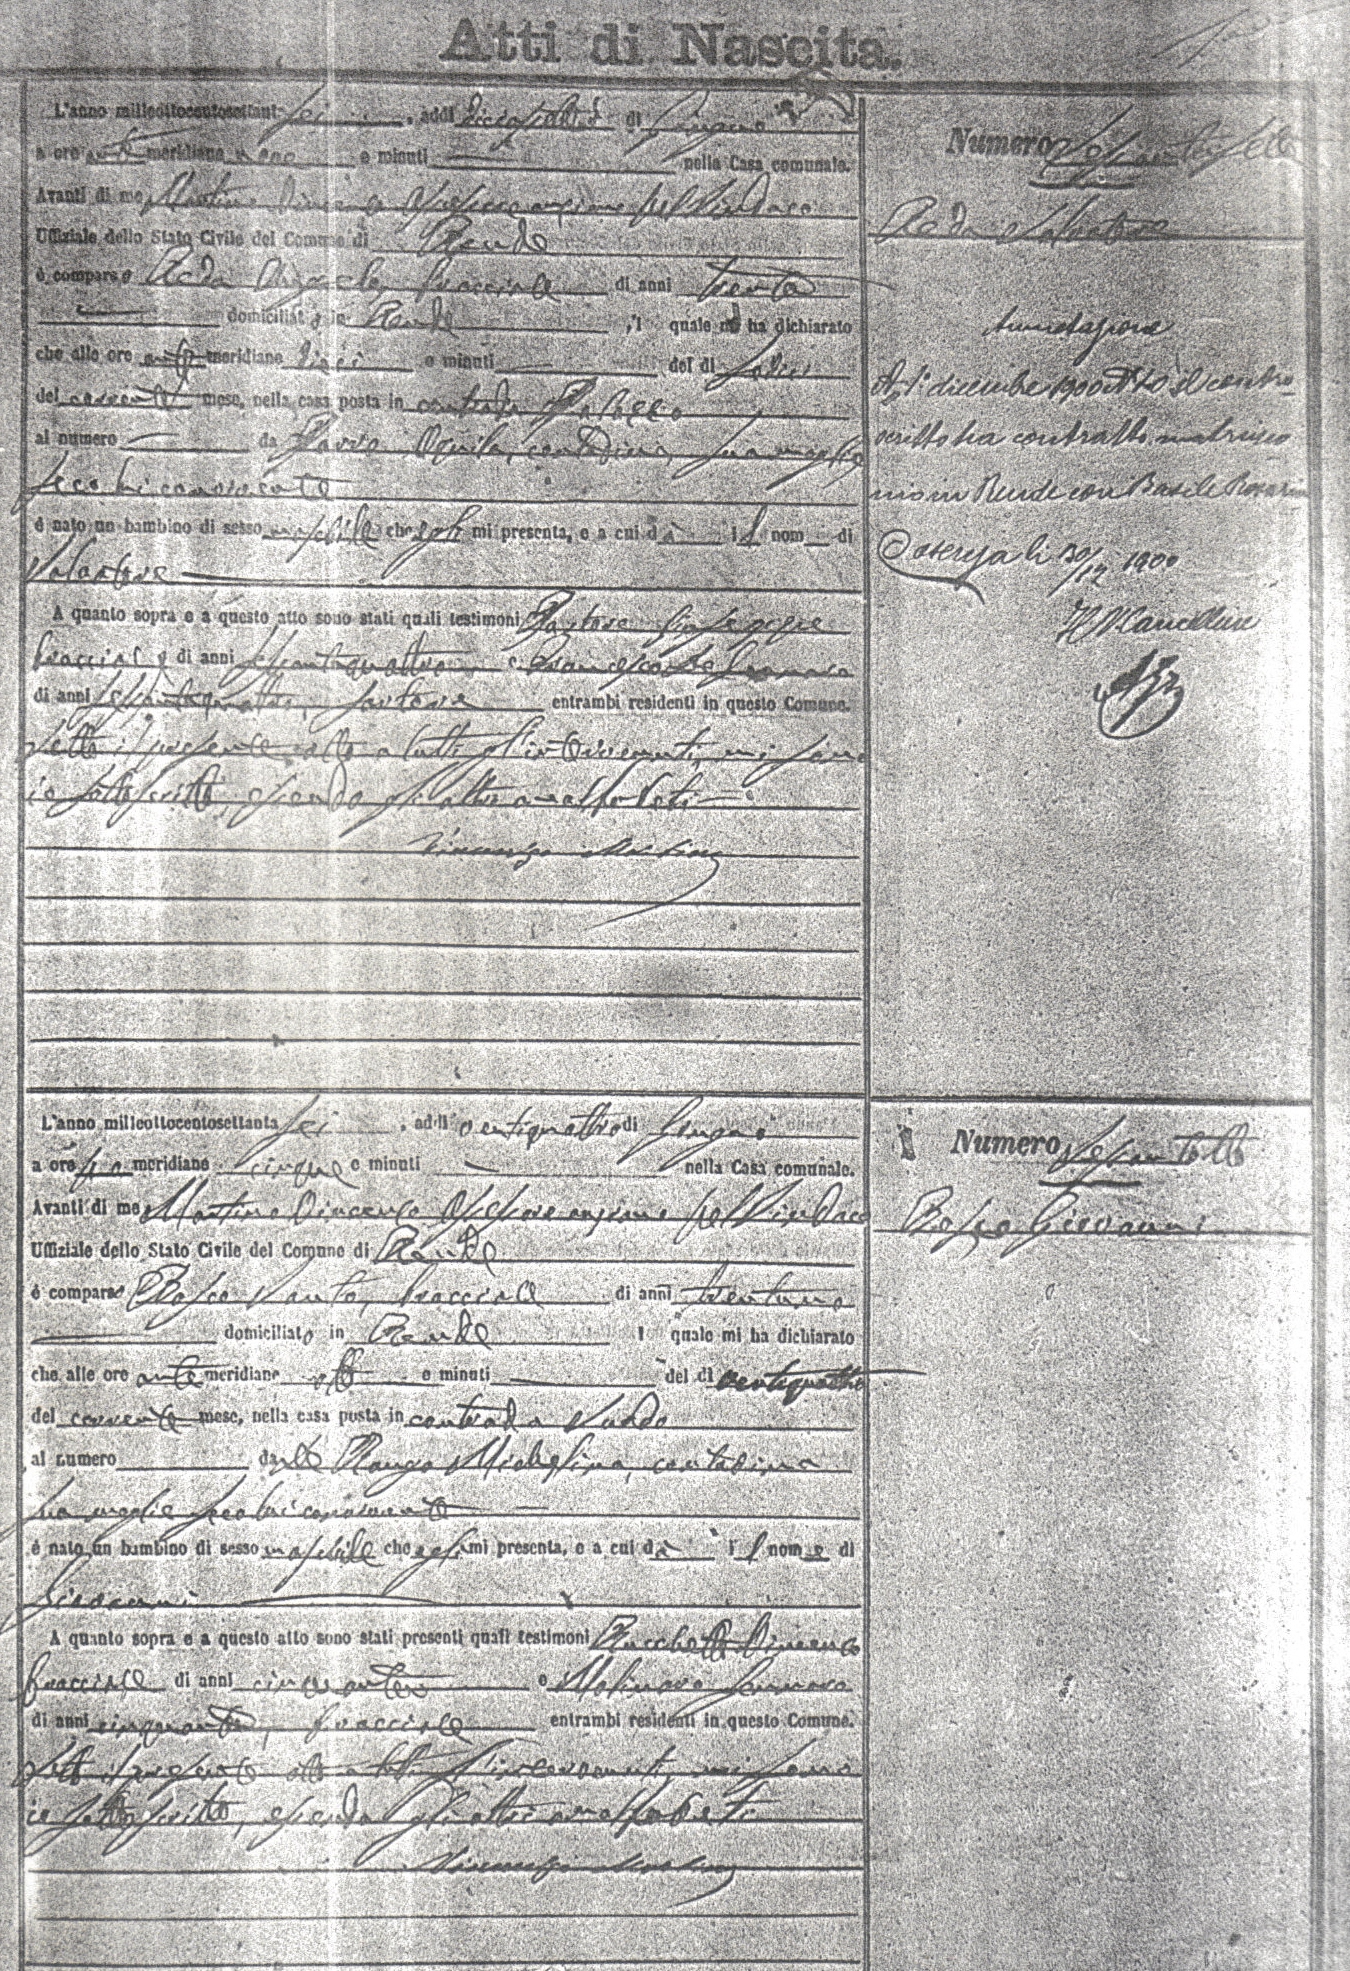 Atti di Nascita.
L'anno milleottocentosettanta sei, addi diciassette di Giugno
a ore ante meridiane nove e minuti nella Casa comunale.
Avanti di me Martino Vincenzo Assessore anziano pel Sindaco
Uffiziale dello Stato Civile del Comune di Rende
è comparso Reda bracciale di anni trenta
domiciliato in Rende, il quale mi ha dichiarato
che alle ore meridiane dieci e minuti del dì sedici
del corrente mese, nella casa posta in contrada
al numero da Aquila, contadina, sua moglie
seco lui convivente
è nato un bambino di sesso maschile che egli mi presenta, e a cui dà il nom di
Salvatore
A quanto sopra e a questo atto sono stati quali testimoni Pastore Giuseppe
bracciale di anni e Francesco
di anni sartore entrambi residenti in questo Comune.
Letto il presente atto a tutti gl'intervenuti, mi sono
io sottoscritto, essendo gli altri analfabeti
Vincenzo Martino
Numero Sessantasette
Reda Salvatore
Annotazione
1° dicembre 1900 il contro
scritto ha contratto matrimo
nio in Rende con Basile Rosaria
Cosenza li 30/12 1900
Il V. Cancelliere
L'anno milleottocentosettanta sei, addi ventiquattro di Giugno
a ore po meridiane cinque e minuti nella Casa comunale.
Avanti di me Martino Vincenzo Assessore anziano pel Sindaco
Uffiziale dello Stato Civile del Comune di Rende
è comparso Bosco Santo, bracciale di anni trentuno
domiciliato in Rende l quale mi ha dichiarato
che alle ore ante meridiane otto e minuti del dì ventiquattro
del corrente mese, nella casa posta in contrada
al numero da Mango Michelina, contadina
sua moglie seco lui convivente
è nato un bambino di sesso maschile che egli mi presenta, e a cui dà il nome di
Giovanni
A quanto sopra e a questo atto sono stati presenti quali testimoni Zucchetto Vincenzo
bracciale di anni cinquanta e Molinaro Gennaro
di anni cinquanta, bracciale entrambi residenti in questo Comune.
Letto il presente atto a tutti gl'intervenuti, mi sono
io sottoscritto, essendo gli altri analfabeti
Vincenzo Martino
Numero Sessantotto
Bosco Giovanni